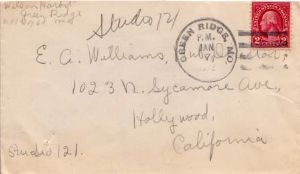 Green Ridge
Mo
Studio 121
GREEN RIDGE, MO.
P.M.
JAN
2
E. A. Williams,
1023 N. Sycamore Ave.,
Hollywood,
California
Studio 121.